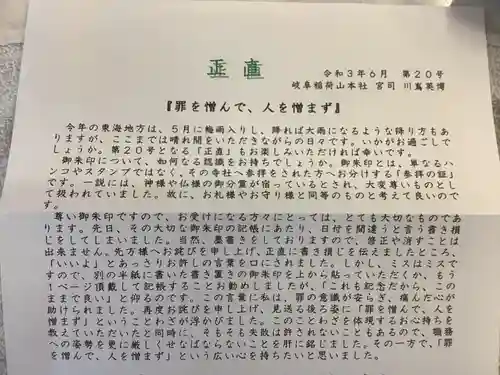 正直
令和3年6月 第20号
岐阜稲荷山本社 宮司 川嶌英博
『罪を憎んで、人を憎まず』
今年の東海地方は、5月に梅雨入りし、降れば大雨になるような降り方もあ
りますが、ここまでは晴れ間をいただきながらの日々です。いかがお過ごしで
しょうか。第20号となる『正直』もお楽しみいただければ幸いです。
御朱印について、如何なる認識をお持ちでしょうか。御朱印とは、単なるハ
ンコやスタンプではなく、その寺社へ参拝をされた方へお分けする「参拝の証」
です。一説には、神様や仏様の御分霊が宿っているとされ、大変尊いものとし
て扱われていました。故に、お札様やお守り様と同等のものと考えて良いので
す。
尊い御朱印ですので、お受けになる方々にとっては、とても大切なものであ
ります。先日、その大切な御朱印の記帳にあたり、日付を間違うと言う書き損
じをしてしまいました。当然、墨書きをしておりますので、修正や消すことは
出来ません。先方様へお詫びを申し上げ、正直に書き損じを伝えましたところ、
「いいよ」とあっさりお許しの言葉を口にされました。しかし、ミスはミスで
すので、別の半紙に書いた書き置きの御朱印を上から貼っていただくか、もう
1ページ頂戴して記帳することお勧めしましたが、「これも記念だから、この
ままで良い」と仰るのです。この言葉に私は、罪の意識が安らぎ、痛んだ心が
助けられました。再度お詫びを申し上げ、見送る後ろ姿に「罪を憎んで、人を
憎まず」ということわざが浮かびました。このことわざを体現するお心持ちを
教えていただいたと同時に、そもそも失敗は許されないこともあるので、職務
への姿勢を更に厳しくせなばならないことを肝に銘じました。その一方で、「罪
を憎んで、人を憎まず」という広い心を持ちたいと思いました。